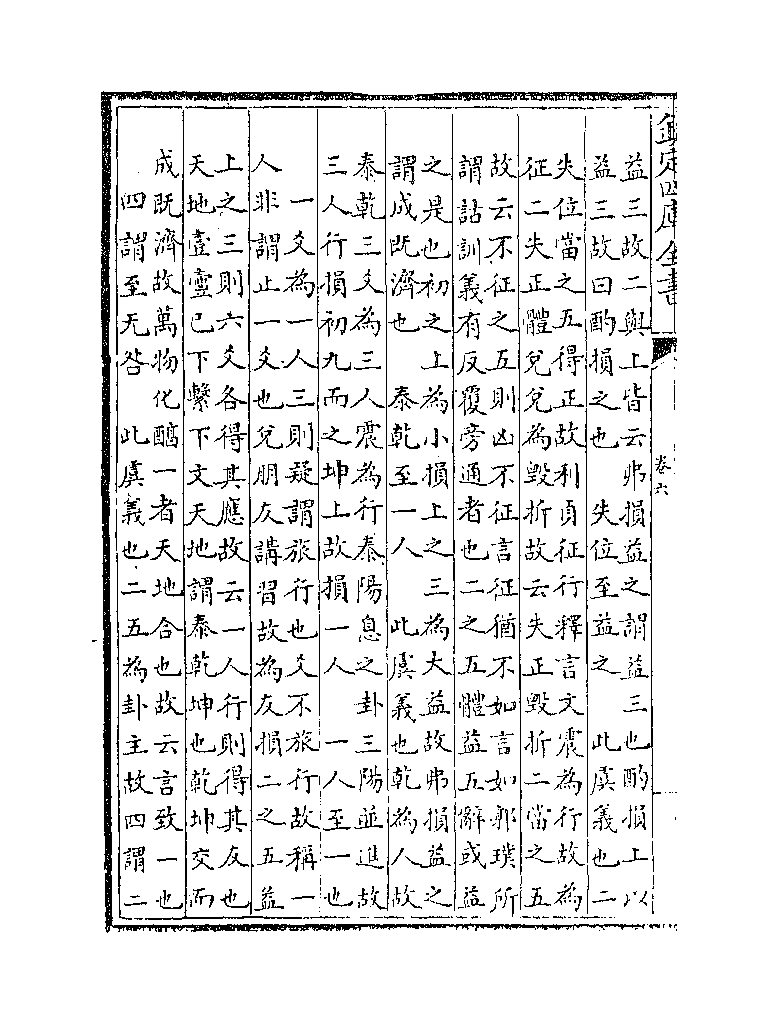 欽定四庫全書
卷六
益三故二與上皆云弗損益之謂益三也酌損上以
益三故曰酌損之也　失位至益之　此虞義也二
失位當之五得正故利貞征行釋言文震為行故為
征二失正體兌兌為毀折故云失正毀折二當之五
故云不征之五則凶不征言征猶不如言如郭璞所
謂詁訓義有反覆旁通者也二之五體益五辭或益
之是也初之上為小損上之三為大益故弗損益之
謂成既濟也　泰乾至一人　此虞義也乾為人故
泰乾三爻為三人震為行泰陽息之卦三陽並進故
三人行損初九而之坤上故損一人　一人至一也
一爻為一人三則疑謂旅行也爻不旅行故稱一
人非謂止一爻也兌朋友講習故為友損二之五益
上之三則六爻各得其應故云一人行則得其友也
天地壹𡔷已下繫下文天地謂泰乾坤也乾坤交而
成既濟故萬物化醕一者天地合也故云言致一也
四謂至无咎　此虞義也二五為卦主故四謂二